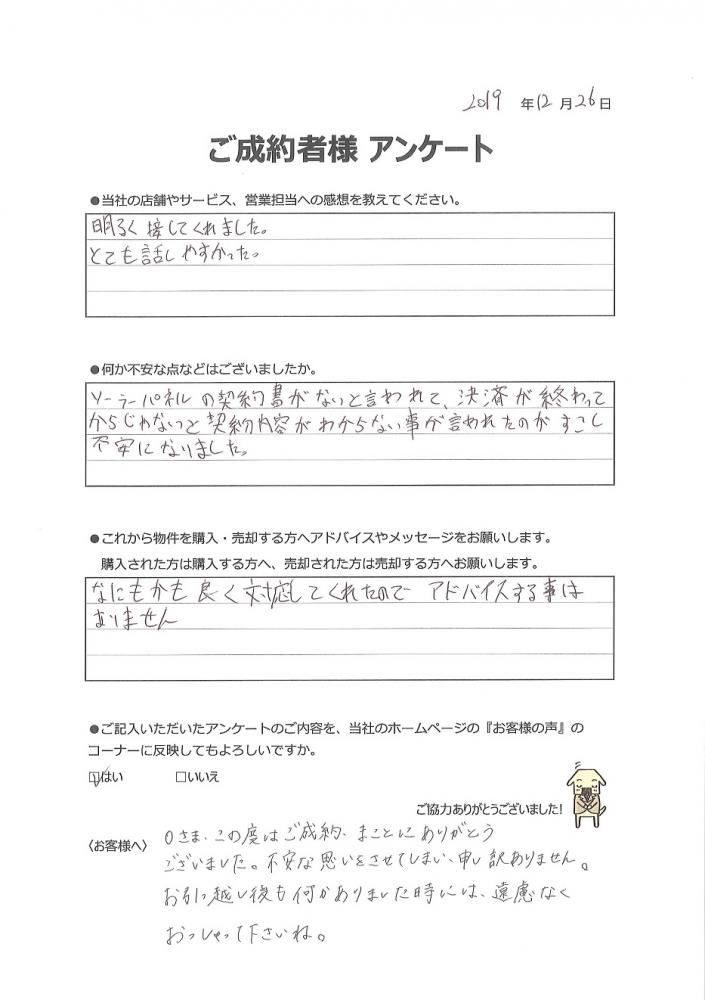 2019 年12月26日
ご成約者様 アンケート
●当社の店舗やサービス、営業担当への感想を教えてください。
明るく接してくれました。
とても話しやすかった。
●何か不安な点などはございましたか。
ソーラーパネルの契約書がないと言われて、決済が終わって
からじゃないっと契約内容がわからない事が言われたのがすこし
不安になりました。
●これから物件を購入・売却する方へアドバイスやメッセージをお願いします。
購入された方は購入する方へ、売却された方は売却する方へお願いします。
なにもかも良く対応してくれたので アドバイスする事は
ありません
●ご記入いただいたアンケートのご内容を、当社のホームページの『お客様の声』の
コーナーに反映してもよろしいですか。
☑はい □いいえ
ご協力ありがとうございました!
〈お客様へ〉
Oさま、この度はご成約、まことにありがとう
ございました。不安な思いをさせてしまい、申し訳ありません。
お引っ越し後も何かありました時には、遠慮なく
おっしゃって下さいね。